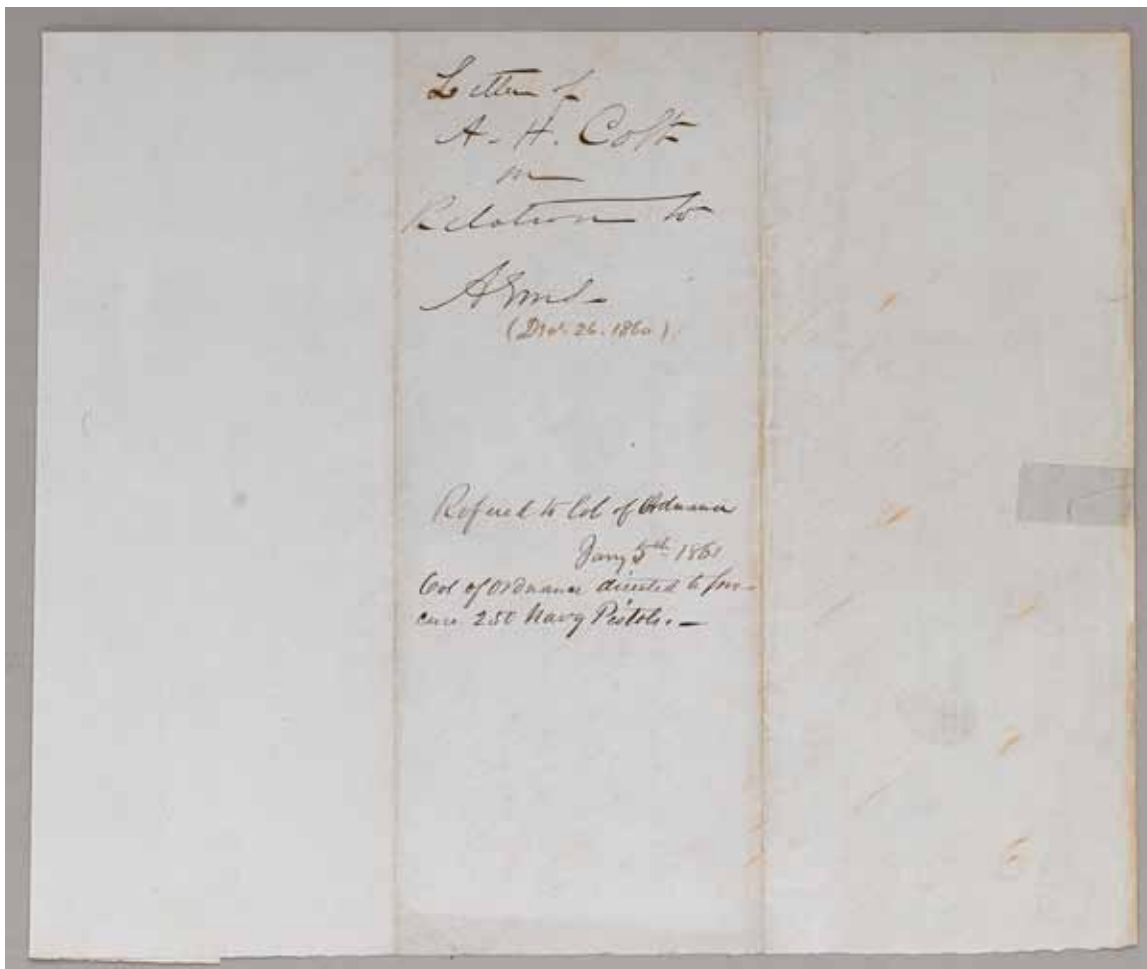 Letter of
A. H. Colt
in
Relation to
Arms
(Dec. 26. 1860).
Refered to Col of Ordnance
Jany 5th 1861
Col of Ordnance directed to pro-
cure 250 Navy Pistols. —